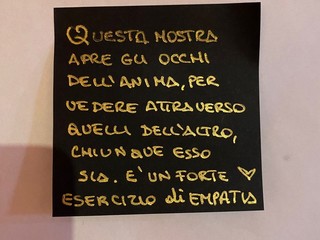 QUESTA MOSTRA
APRE GLI OCCHI
DELL'ANIMA, PER
VEDERE ATTRAVERSO
QUELLI DELL'ALTRO,
CHIUNQUE ESSO
SIA. E' UN FORTE
ESERCIZIO di EMPATIA